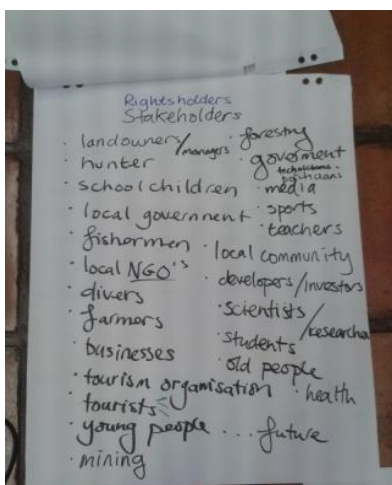 Rightsholders
Stakeholders
· landowners/managers
· hunter
· schoolchildren
· local government
· fishormen
· local NGO's
· divers
· farmers
· businesses
· tourism organisation
· tourists
· young people ... future
· mining
· forestry
· goverment
technitians -
politicians
· media
· sports
· teachers
· local community
· developers/investors
· scientists
/researcher
· students
· old people
· health